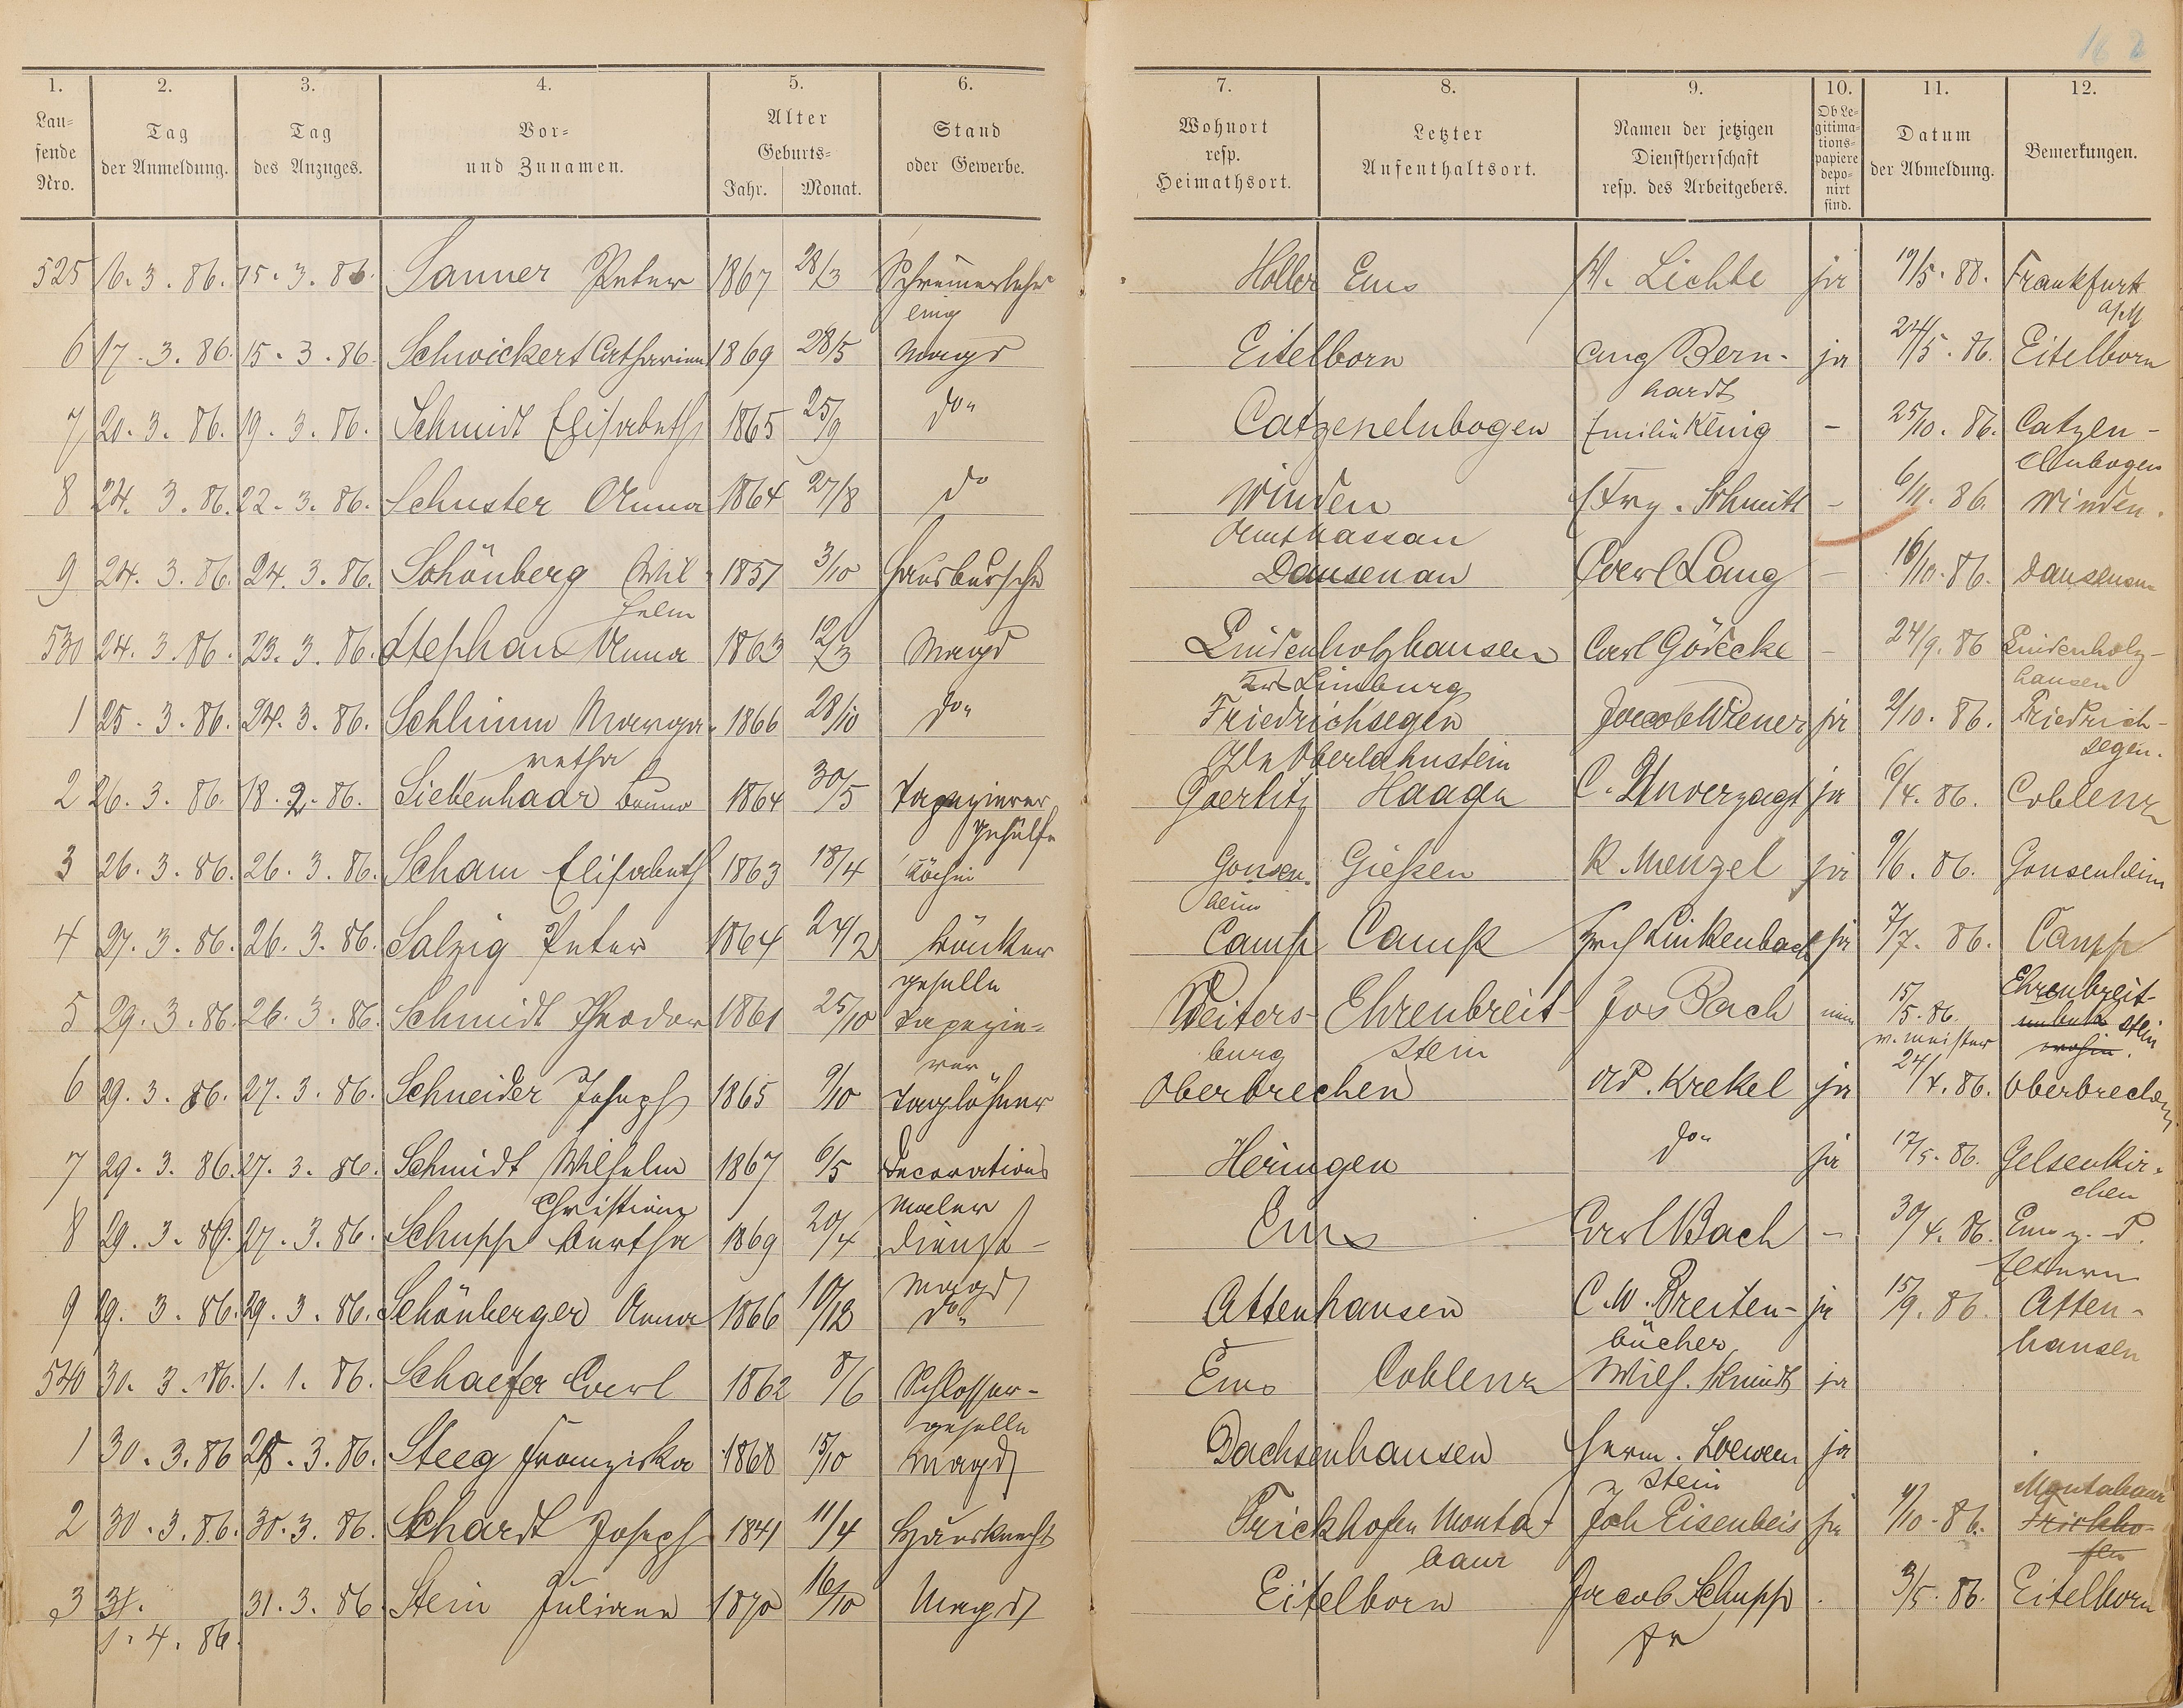 16
1. 2. 3. 4. 5. 6. 7. 8. 9. 10. 11. 12.
Lau-
fende
Nro.
Tag
der Anmeldung.
Tag
des Anzuges.
Vor-
und Zunamen.
Alter
Geburts-
Jahr. Monat.
Stand
oder Gewerbe.
Wohnort
resp.
Heimathsort.
Letzter
Aufenthaltsort.
Namen der jetzigen
Dienstherrschaft
resp. des Arbeitgebers.
Ob Le-
gitima-
tions-
papiere
depo-
nirt
sind.
Datum
der Abmeldung.
Bemerkungen.
525 16. 3. 86. 15. 3. 86. Sanner Peter 1867 28/3 Schreinerlehr Holler Ems W. Lichte ja 19/5. 88. Frankfurt
ling a/M
6 17. 3. 86. 15. 3. 86. Schwickert Catharina 1869 28/5 Magd Eitelborn Aug Bern- ja 24/5. 86. Eitelborn
hardt
7 20. 3. 86. 19. 3. 86. Schmidt Elisabeth 1865 25/9 do Catzenelnbogen Emilie König - 25/10. 86. Catzen-
elnbogen
8 24. 3. 86. 22. 3. 86. Schuster Anna 1864 27/8 do Winden Frz. Schmitt - 6/11. 86. Winden.
Amt Nassau
9 24. 3. 86. 24. 3. 86. Schönberg Wil- 1857 3/10 Hausbursche Dausenau Carl Lang - 16/10. 86. Dausenau
helm
530 24. 3. 86. 23. 3. 86. Stephan Anna 1863 12/3 Magd Lindenholzhausen Carl Gödecke - 24/9. 86 Lindenholz-
Limburg hausen
1 25. 3. 86. 24. 3. 86. Schlimm Marga- 1866 28/10 do Friedrichsegen Jacob Wiener ja 2/10. 86. Friedrich-
retha Oberlahnstein segen.
2 26. 3. 86. 18. 2. 86. Siebenhaar Bruno 1864 30/5 Tapezierer Goerlitz Haagen C. Unverzagt ja 6/4. 86. Coblenz
gehülfe
3 26. 3. 86. 26. 3. 86. Scham Elisabeth 1863 18/4 Köchin Gonsen- Gießen R. Menzel ja 9/6. 86. Gonsenheim
heim
4 27. 3. 86. 26. 3. 86. Salzig Peter 1864 24/2 Bäcker Camp Camp Linkenbach ja 7/7. 86. Camp
geselle
5 29. 3. 86. 26. 3. 86. Schmidt Theodor 1861 25/10 Tapezie- Weiters- Ehrenbreit- Jos Bach nein 15/5. 86. Ehrenbreit-
rer burg stein v. meister unbek. stein
wohin.
6 29. 3. 86. 27. 3. 86. Schneider Joseph 1865 9/10 Taglöhner Oberbrechen Ad. Krekel ja 24/4. 86. Oberbrechen
7 29. 3. 86. 27. 3. 86. Schmidt Wilhelm 1867 6/5 Decorations Heringen do ja 17/5. 86. Gelsenkir-
Christian Maler chen
8 29. 3. 86. 27. 3. 86. Schupp Bertha 1869 20/4 Dienst- Ems Carl Bach - 30/4. 86. Ems z. d.
magd Eltern
9 29. 3. 86. 29. 3. 86. Schönberger Anna 1866 10/12 do Attenhausen C. W. Breiten- ja 15/9. 86. Atten-
bücher hausen
540 30. 3. 86. 1. 1. 86. Schaefer Carl 1862 8/6 Schlosser- Ems Coblenz Wilh. Schmidt ja
geselle
1 30. 3. 86 28. 3. 86. Steeg Franziska 1868 15/10 Magd Dachsenhausen Herm. Loewen ja
stein
Montabaur
2 30. 3. 86. 30. 3. 86. Schardt Joseph 1841 11/4 Hausknecht Frickhofen Monta- Joh Eisenbeis ja 4/10. 86. Frickho-
baur fen
3 31. 31. 3. 86 Stein Juliana 1870 16/10 Magd Eitelborn Jacob Schupp . 3/5. 86. Eitelborn
1. 4. 86.